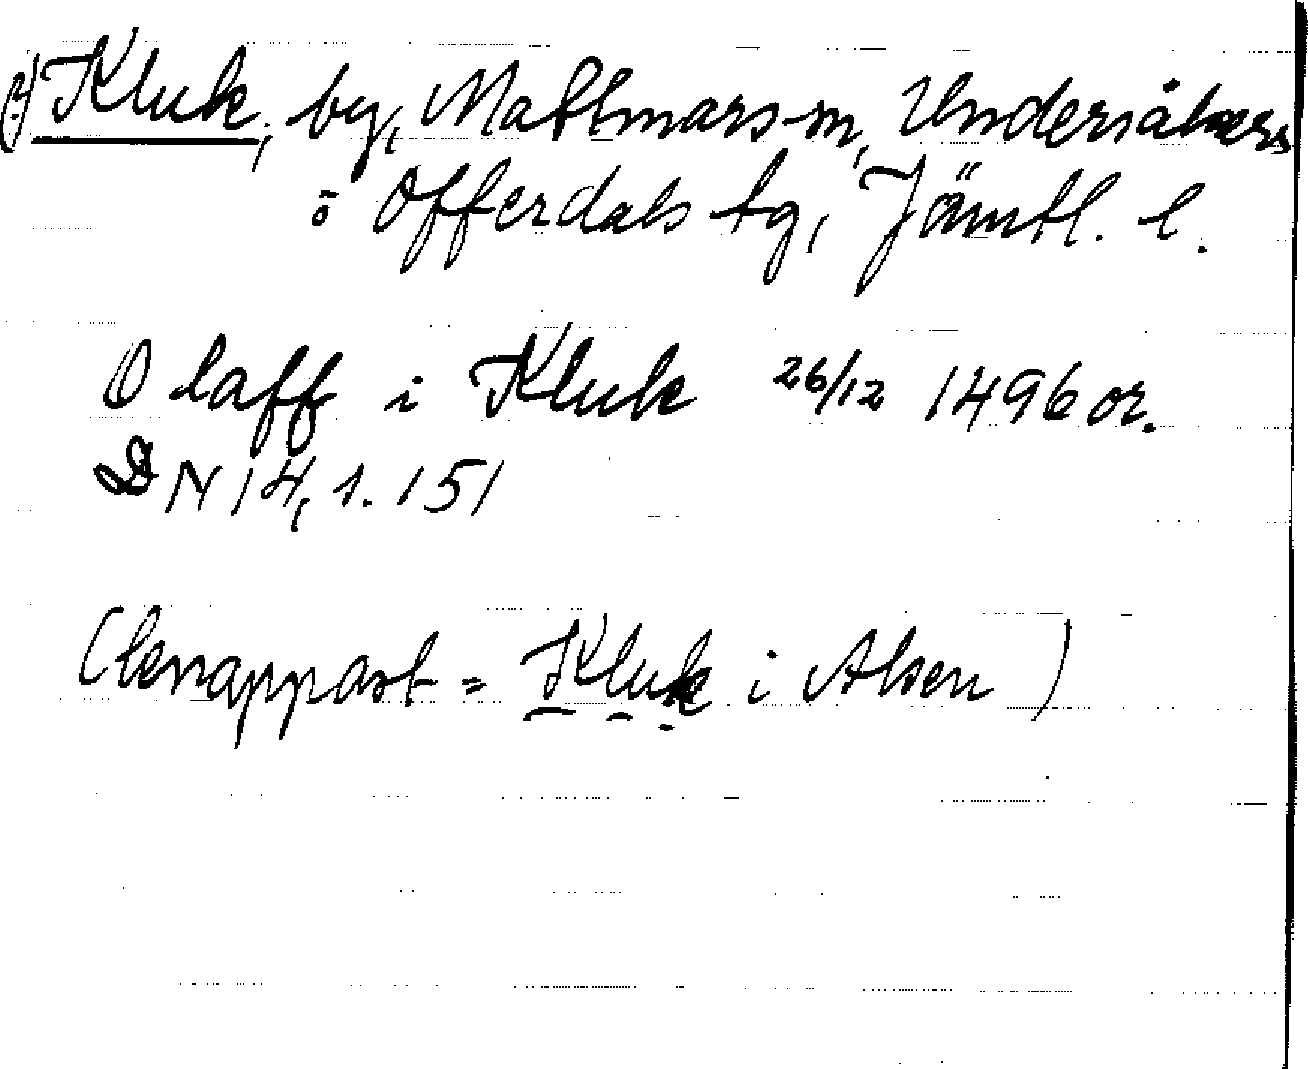 (?) Kluk, by, Mattmars sn, Undersåkers
o Offerdals tg, Jämtl. l.
Olaff i Kluk 26/12 1496 or.
DN 14, 1. 151
(knappast = Kluk i Alsen)